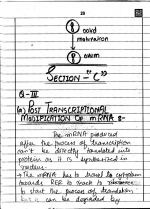 20
ovoid
maturation
ovum
SECTION "C"
Q-III
(a) POST TRANSCRIPTIONAL
MODIFICATION OF mRNA :-
The mRNA produced
after the process of transcription
can't be directly translated into
protein as it is synthesized in
nucleus.
→ The mRNA has to travel to cytoplasm
towards RER to reach to ribosome
to start the process of translation
but it can be degraded by